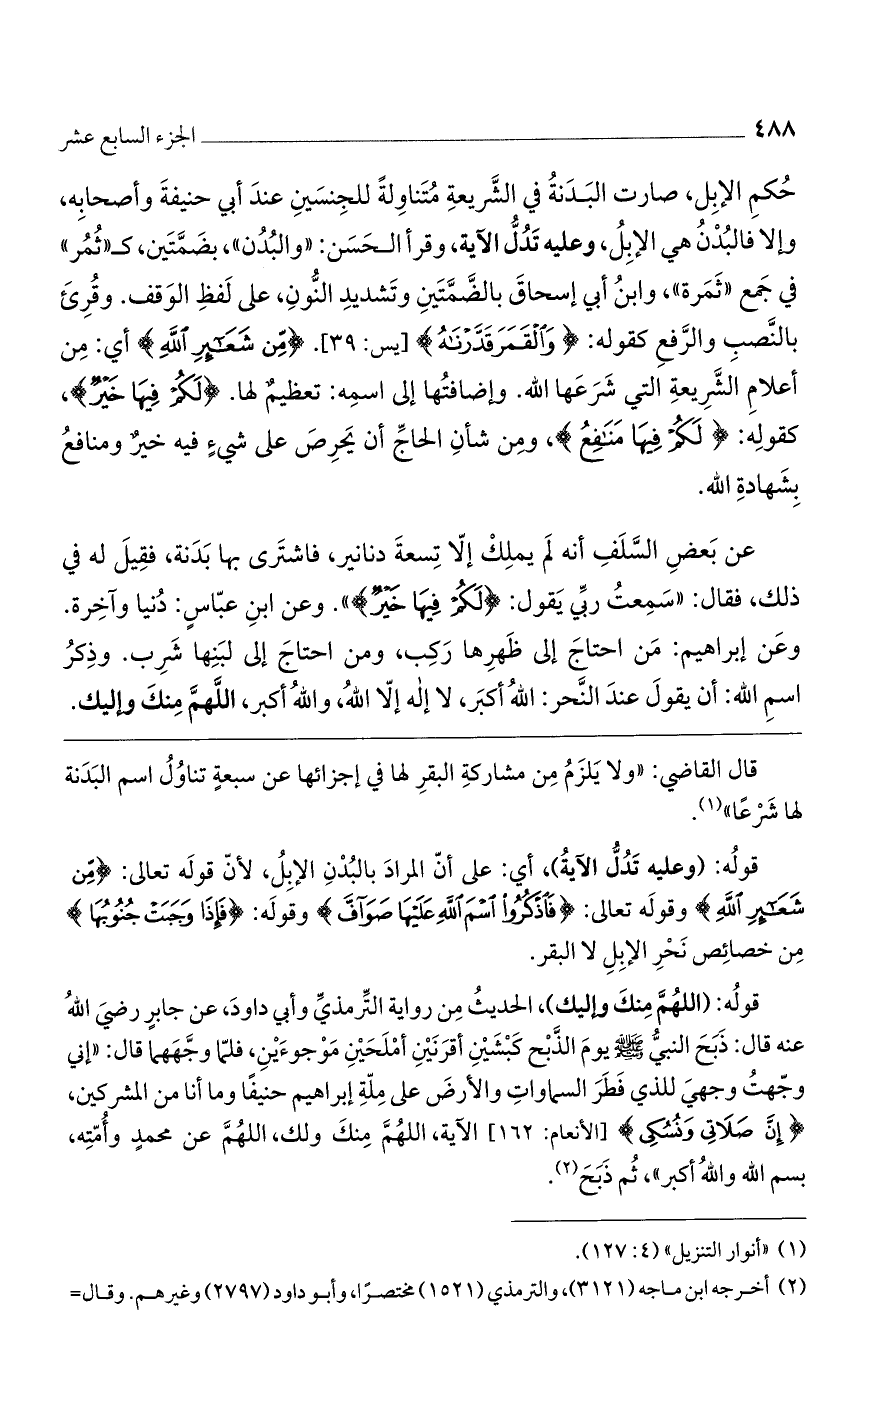 ٤٨٨ الجزء السابع عشر
حُكمِ الإبِل، صارت البَدَنةُ في الشَّريعةِ مُتَناوِلةً للجِنسَينِ عندَ أبي حنيفةَ وأصحابِه،
وإلا فالبُدْنُ هي الإبِلُ، وعليه تَدُلُّ الآية، وقرأ الحَسَن: «والبُدُن»، بضَمَّتَين، كـ«ثُمُر»
في جَمع «ثَمَرة»، وابنُ أبي إسحاقَ بالضَّمَّتَينِ وتَشديدِ النُّونِ، على لَفظِ الوَقف. وقُرِئَ
بالنَّصبِ والرَّفعِ كقوله: ﴿ وَٱلْقَمَرَ قَدَّرْنَٰهُ ﴾ [يس: ٣٩]. ﴿مِّن شَعَٰٓئِرِ ٱللَّهِ ﴾ أي: مِن
أعلامِ الشَّريعةِ التي شَرَعَها الله. وإضافتُها إلى اسمِه: تعظيمٌ لها. ﴿لَكُمْ فِيهَا خَيْرٌ﴾،
كقولِه: ﴿ لَكُمْ فِيهَا مَنَٰفِعُ ﴾، ومِن شأنِ الحاجِّ أن يَحرِصَ على شيءٍ فيه خيرٌ ومنافعُ
بِشَهادةِ الله.
عن بَعضِ السَّلَفِ أنه لَم يملِكْ إلّا تِسعةَ دنانير، فاشتَرى بها بَدَنة، فقِيلَ له في
ذلك، فقال: «سَمِعتُ ربِّي يَقول: ﴿لَكُمْ فِيهَا خَيْرٌ﴾». وعن ابنِ عبّاسٍ: دُنيا وآخِرة.
وعَن إبراهيم: مَن احتاجَ إلى ظَهرِها رَكِب، ومن احتاجَ إلى لبَنِها شَرِب. وذِكرُ
اسمِ الله: أن يقولَ عندَ النَّحر: اللهُ أكبَر، لا إلٰه إلّا اللهُ، واللهُ أكبر، اللَّهمَّ مِنكَ وإليك.
قال القاضي: «ولا يَلزَمُ مِن مشاركةِ البقرِ لها في إجزائها عن سبعةٍ تناوُلُ اسم البَدَنة
لها شَرْعًا»(١).
قولُه: (وعليه تَدُلُّ الآيةُ)، أي: على أنّ المرادَ بالبُدْنِ الإبِلُ، لأنّ قولَه تعالى: ﴿مِّن
شَعَٰٓئِرِ ٱللَّهِ ﴾ وقولَه تعالى: ﴿فَٱذْكُرُوا۟ ٱسْمَ ٱللَّهِ عَلَيْهَا صَوَآفَّ ﴾ وقولَه: ﴿فَإِذَا وَجَبَتْ جُنُوبُهَا ﴾
مِن خصائصِ نَحْرِ الإبِلِ لا البقر.
قولُه: (اللهُمَّ مِنكَ وإليك)، الحديثُ مِن رواية التِّرمذيِّ وأبي داودَ، عن جابرٍ رضيَ اللهُ
عنه قال: ذَبَحَ النبيُّ ﷺ يومَ الذَّبْحِ كَبْشَيْنِ أقرَنَيْنِ أمْلَحَيْنِ مَوْجوءَيْنِ، فلمّا وجَّهَهما قال: «إني
وجّهتُ وجهيَ للذي فَطَرَ السماواتِ والأرضَ على مِلّةِ إبراهيم حنيفًا وما أنا من المشركين،
﴿ إِنَّ صَلَاتِى وَنُسُكِى ﴾ [الأنعام: ١٦٢] الآية، اللهُمَّ مِنكَ ولك، اللهُمَّ عن محمدٍ وأُمّتِه،
بسم الله واللهُ أكبر»، ثُم ذَبَحَ(٢).
(١) «أنوار التنزيل» (٤: ١٢٧).
(٢) أخرجه ابن ماجه (٣١٢١)، والترمذي (١٥٢١) مختصرًا، وأبو داود (٢٧٩٧) وغيرهم. وقال=